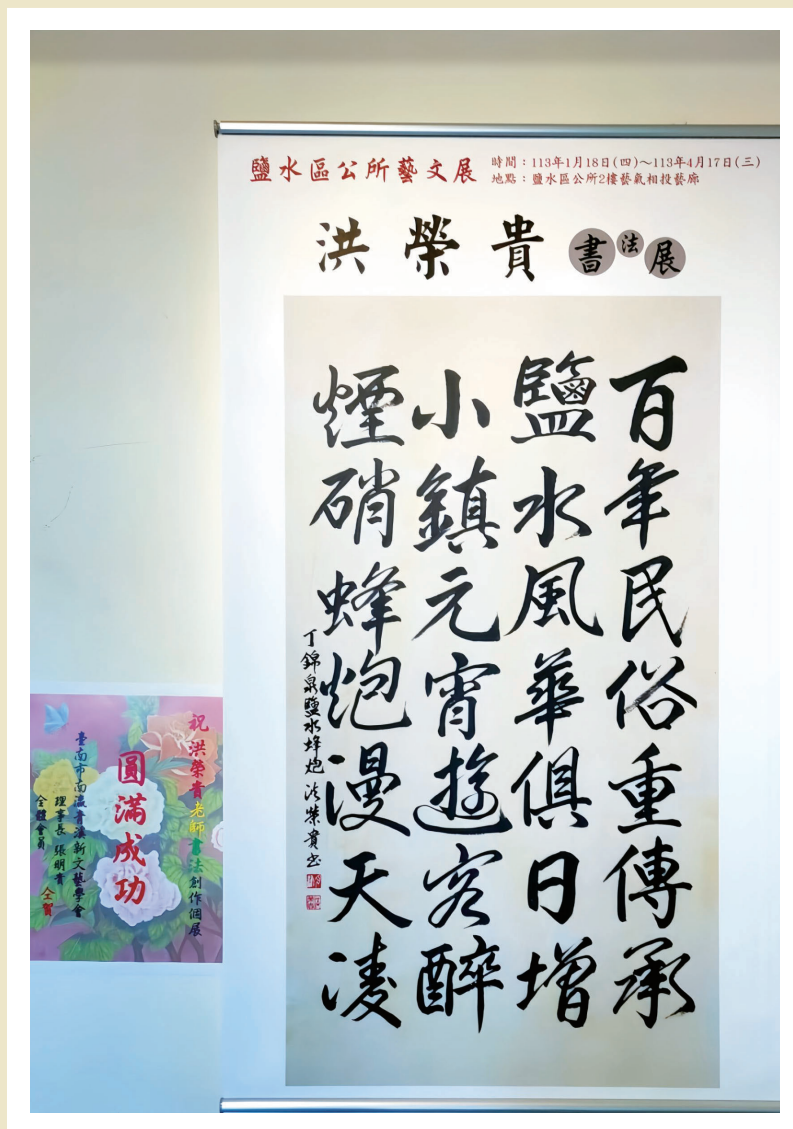 鹽水區公所藝文展
時間：113年1月18日(四)～113年4月17日(三)
地點：鹽水區公所2樓藝氣相投藝廊
洪榮貴 書法展
百年民俗重傳承
鹽水風華俱日增
小鎮元宵遊客醉
煙硝蜂炮漫天凌
丁錦泉鹽水蜂炮 洪榮貴書
祝 洪榮貴老師書法創作個展
圓滿成功
臺南市南瀛青溪新文藝學會
理事長 張明貴
全體會員
仝賀